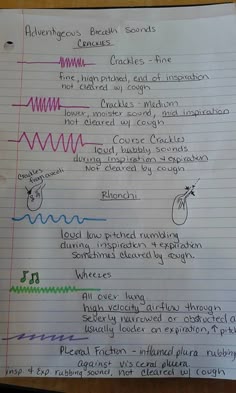 Adventgeous Breath Sounds
CRACKLES
Crackles - fine
fine, high pitched, end of inspiration
not cleared w/ cough
Crackles - Medium
lower, moister sound, mid inspiration
not cleared w/ cough
Course Crackles
loud, bubbly sounds
during inspiration + expiration
Not cleared by cough
Rhonchi
loud low pitched rumbling
during inspiration + expiration
Sometimes cleared by cough.
Wheezes
All over lung
high velocity airflow through
severly narrowed or obstructed a
usually louder on expiration, ↑ pitch
Pleural Friction - inflamed plura rubbing
against visceral pleura
insp + Exp rubbing sound, not cleared w/ cough